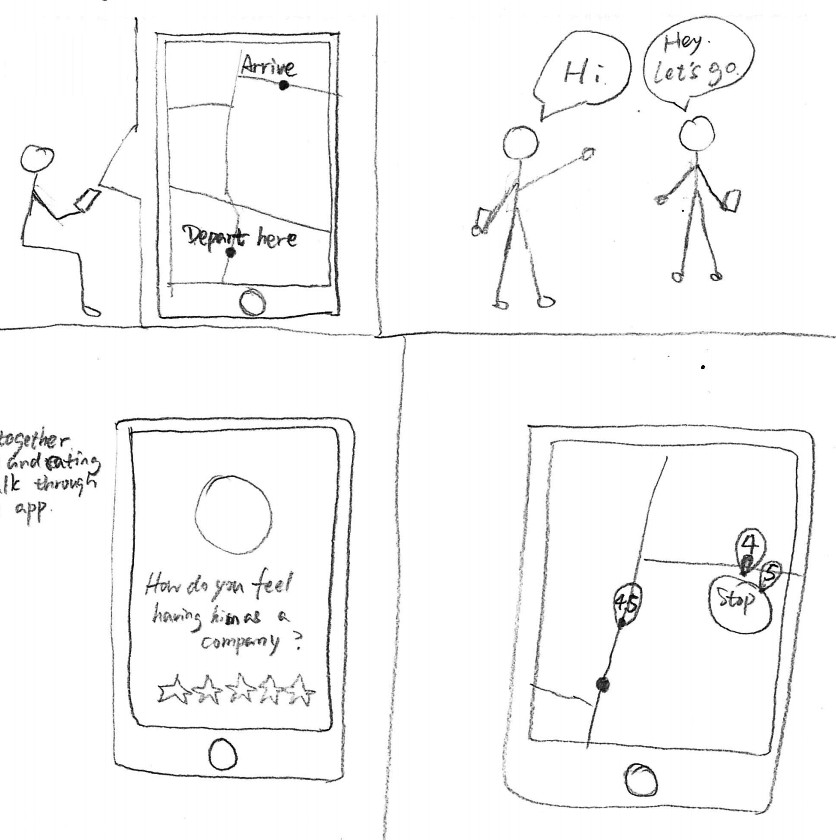 Arrive
Depart here
Hi
Hey.
Let's go.
together
and eating
through
app.
How do you feel
having him as a
company?
4
5
4.5
Stop